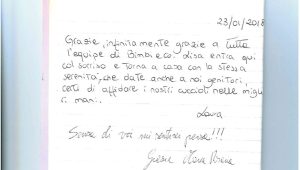 23/01/2018
Grazie, infinitamente grazie a tutta
l'equipe di Bimbi e co. Lisa entra qui
col sorriso e torna a casa con la stessa
serenità, che date anche a noi genitori,
certi di affidare i nostri cuccioli nelle migliori
mani.
Laura
Senza di voi mi sentirei persa!!!
Grazie